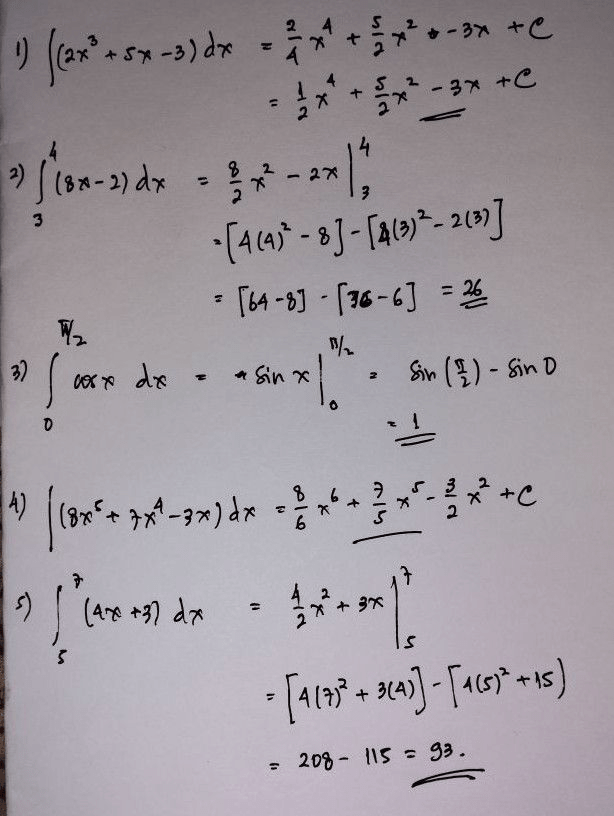 1) ∫(2x³ + 5x - 3) dx = 2/4 x⁴ + 5/2 x² - 3x + C
= 1/2 x⁴ + 5/2 x² - 3x + C
2) ∫₃⁴ (8x - 2) dx = 8/2 x² - 2x |₃⁴
= [4(4)² - 8] - [4(3)² - 2(3)]
= [64 - 8] - [36 - 6] = 26
3) ∫₀^(π/2) cos x dx = sin x |₀^(π/2) = sin (π/2) - sin 0
= 1
4) ∫(8x⁵ + 7x⁴ - 3x) dx = 8/6 x⁶ + 7/5 x⁵ - 3/2 x² + C
5) ∫₅⁷ (4x + 3) dx = 4/2 x² + 3x |₅⁷
= [4(7)² + 3(4)] - [4(5)² + 15)
= 208 - 115 = 93.